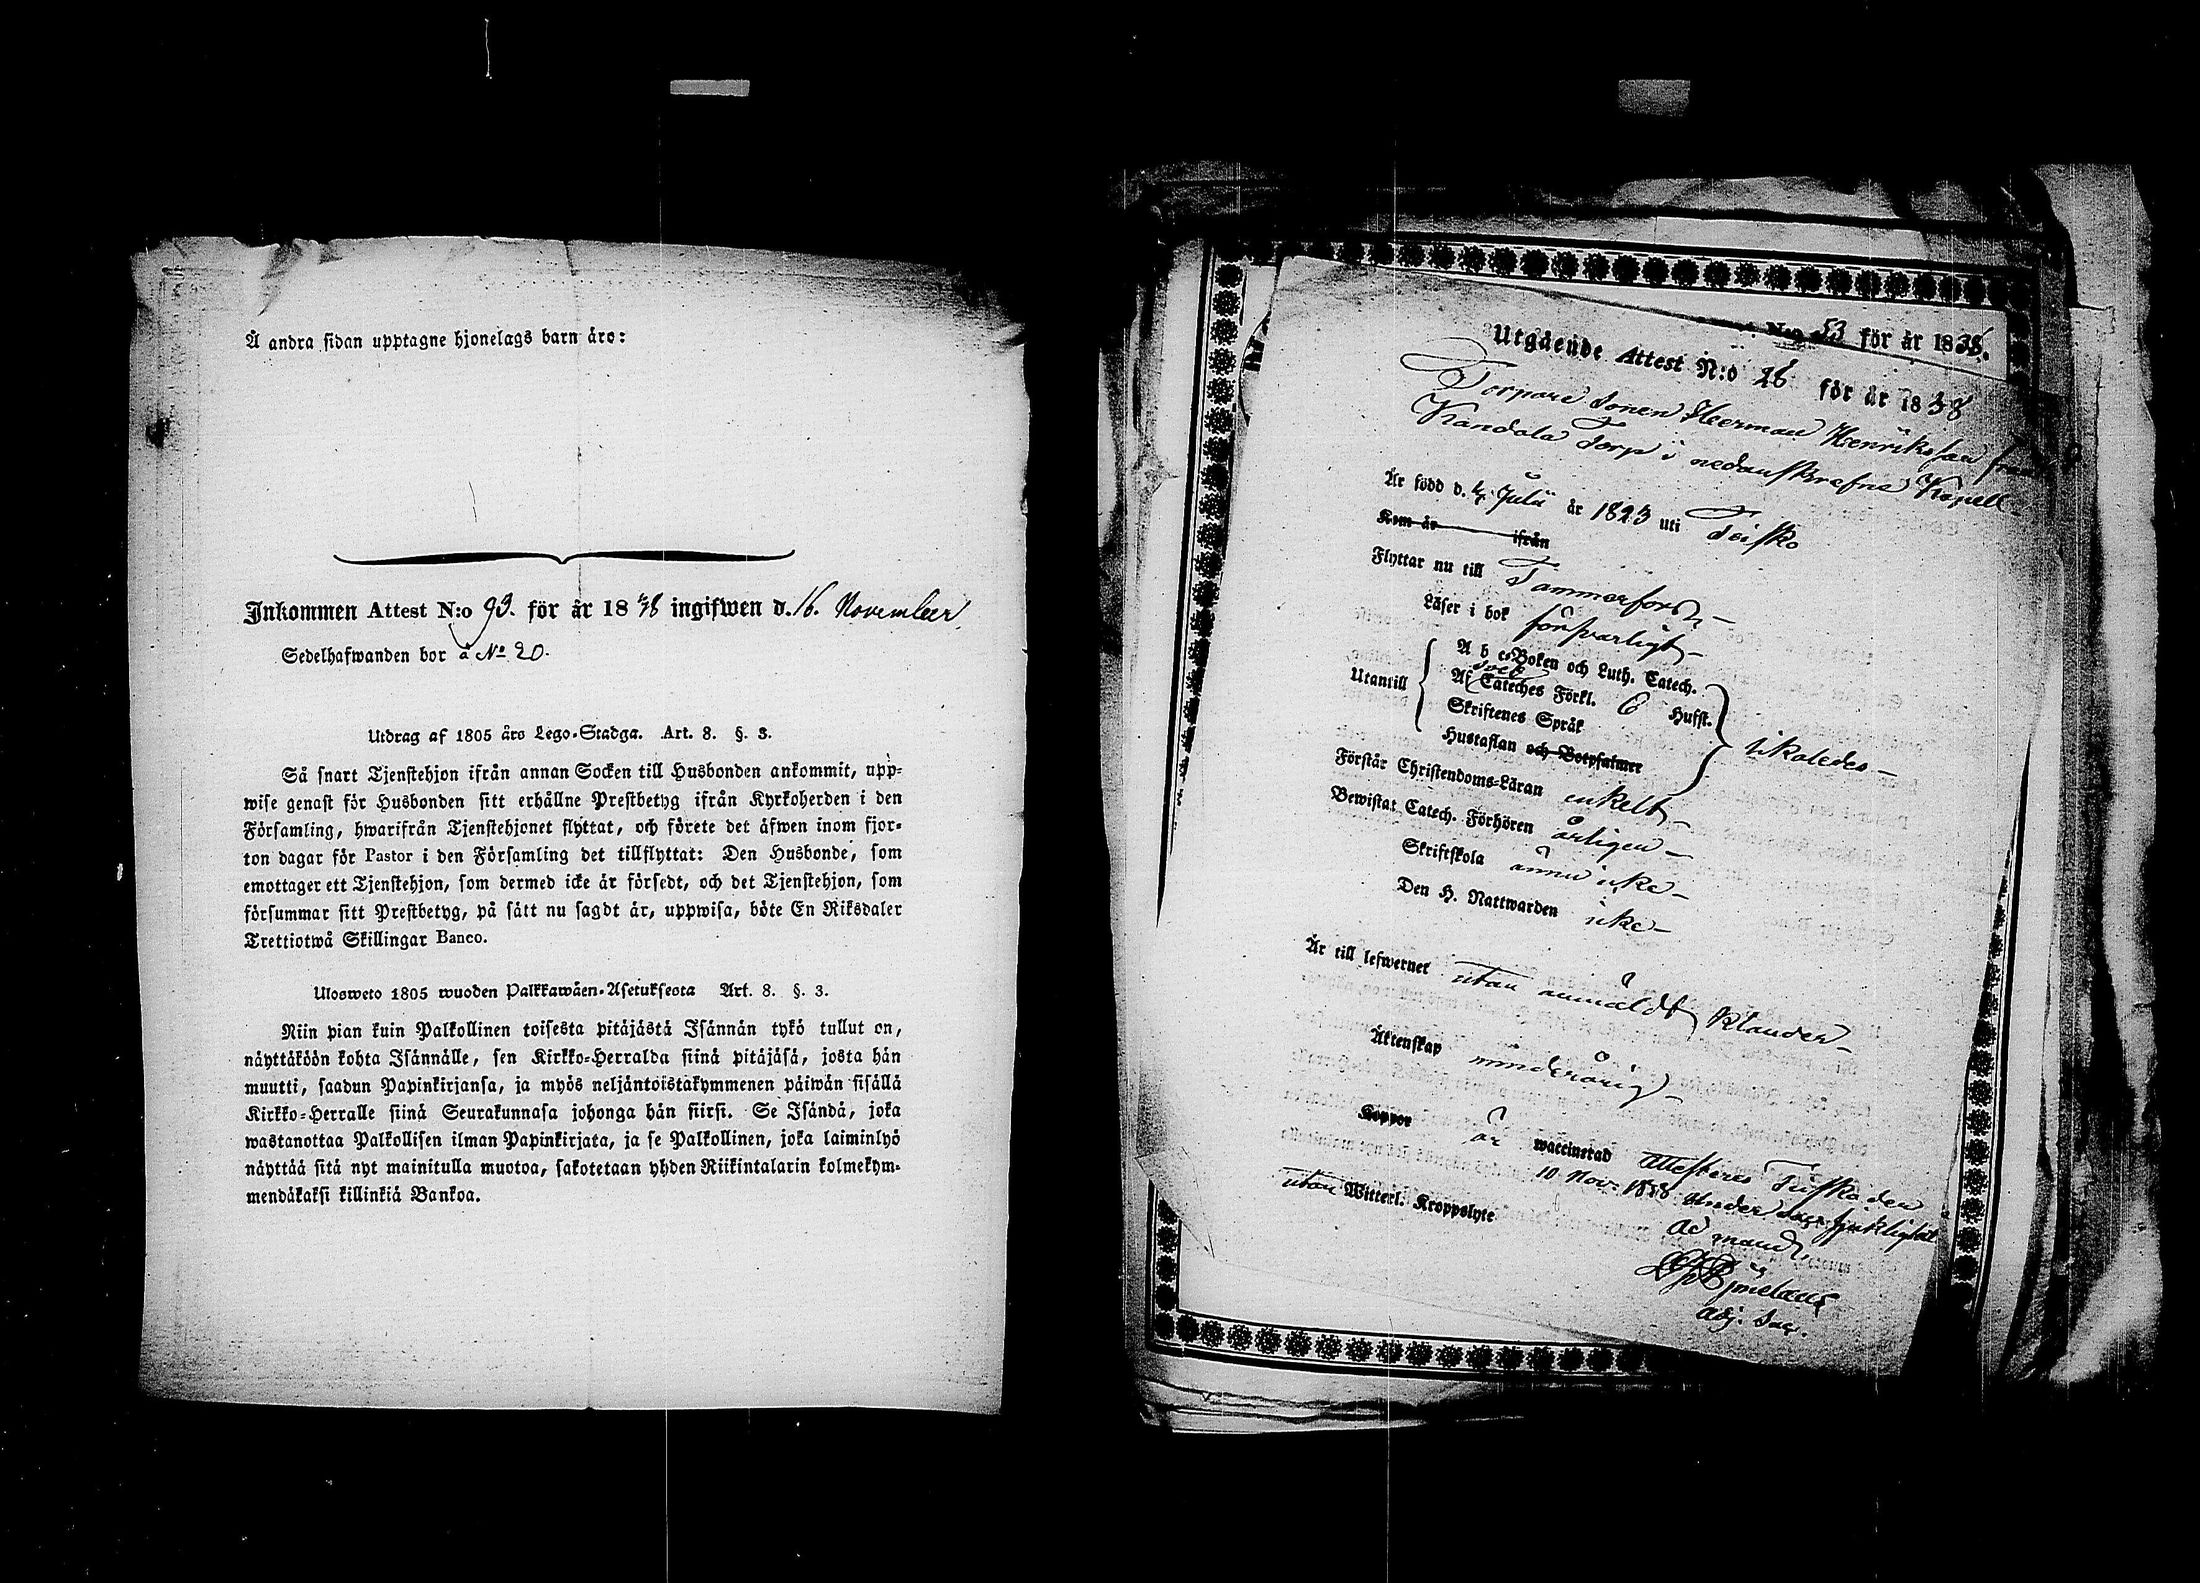 Å andra sidan upptagne hjonelags barn äro:
Inkommen Attest N:o 93. för år 1838 ingifwen d. 16. November
Sedelhafwanden bor å No 20.
Utdrag af 1805 års Lego-Stadga. Art. 8. §. 3.
Så snart Tjenstehjon ifrån annan Socken till Husbonden ankommit, upp-
wise genast för Husbonden sitt erhållne Prestbetyg ifrån Kyrkoherden i den
Församling, hwarifrån Tjenstehjonet flyttat, och förete det äfwen inom fjor-
ton dagar för Pastor i den Församling det tillflyttat: Den Husbonde, som
emottager ett Tjenstehjon, som dermed icke är försedt, och det Tjenstehjon, som
försummar sitt Prestbetyg, på sätt nu sagdt är, uppwisa, böte En Riksdaler
Trettiotwå Skillingar Banco.
Ulosweto 1805 wuoden Palkkawäen-Asetuksesta Art. 8. §. 3.
Niin pian kuin Palkollinen toisesta pitäjästä Isännän tykö tullut on,
näyttäköön kohta Isännälle, sen Kirkko-Herralda siinä pitäjäsä, josta hän
muutti, saadun Papinkirjansa, ja myös neljäntoistakymmenen päiwän sisällä
Kirkko-Herralle siinä Seurakunnasa johonga hän siirsi. Se Isändä, joka
wastanottaa Palkollisen ilman Papinkirjata, ja se Palkollinen, joka laiminlyö
näyttää sitä nyt mainitulla muotoa, sakotetaan yhden Riikintalarin kolmekym-
mendäkaksi killinkiä Bankoa.
N:o 53 för år 1838.
Utgående Attest N:o 26 för år 1838
Torpare Sonen Herman Henriksson från
Kandala Torp i nedanskrefne Kapell
Är född d. 4 Julii år 1823 uti Teisko
Kom år ifrån
Flyttar nu till Tammerfors
Läser i bok försvarligt
Utantill
A b c-Boken och Luth. Catech.
Af Sveb Cateches Förkl. 6 Hufst.
Skriftenes Språk
Hustaflan och Botpsalmer
likaledes
Förstår Christendoms-Läran enkelt
Bewistat Catech. Förhören årligen
Skriftskola ännu icke
Den H. Nattwarden icke
Är till lefwernet utan anmäldt klander
Äktenskap minderårig
Koppor är waccinerad Attesteras Teisko den
10 Nov. 1838 Under Sac. sjuklighet
utan Witterl. Kroppslyte
ad mand.
Adj. Sac.